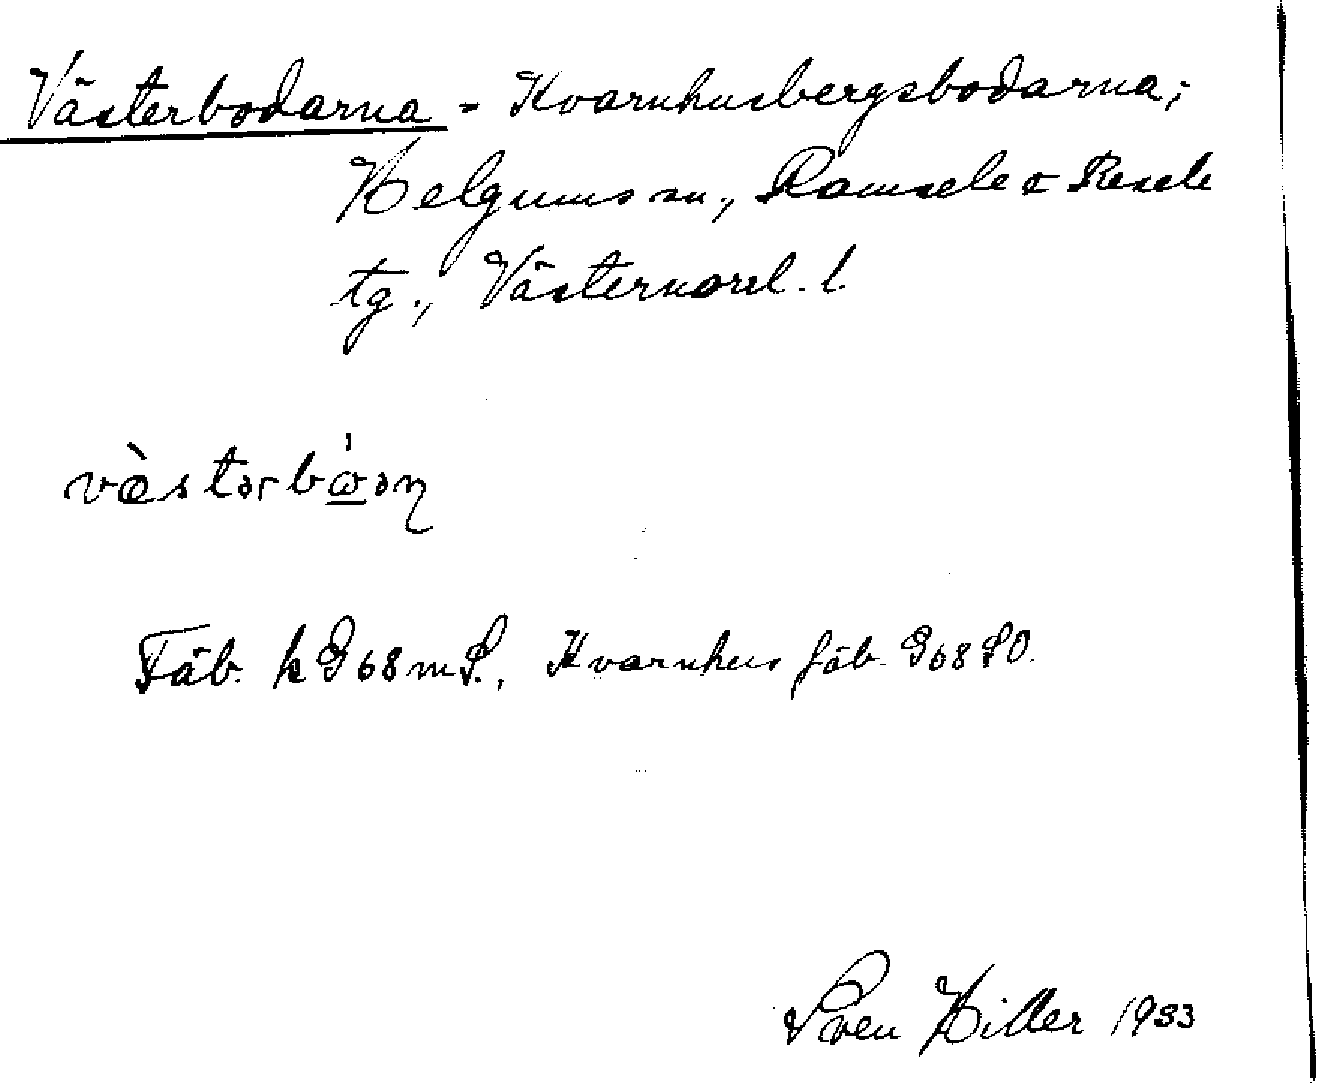 Västerbodarna = Kvarnhusbergsbodarna;
Helgums sn., Ramsele o Resele
tg., Västernorrl. l.
Fäb. k 968 m S., Kvarnhus fäb. 968 SO.
Sven Hiller 1933